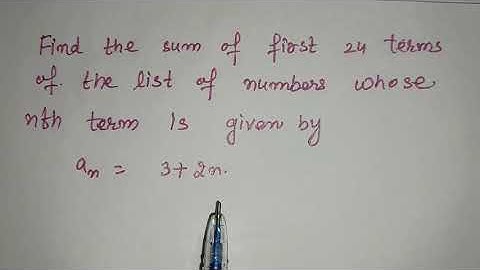 Find the sum of first 24 terms
of the list of numbers whose
nth term is given by
aₙ = 3+2n.